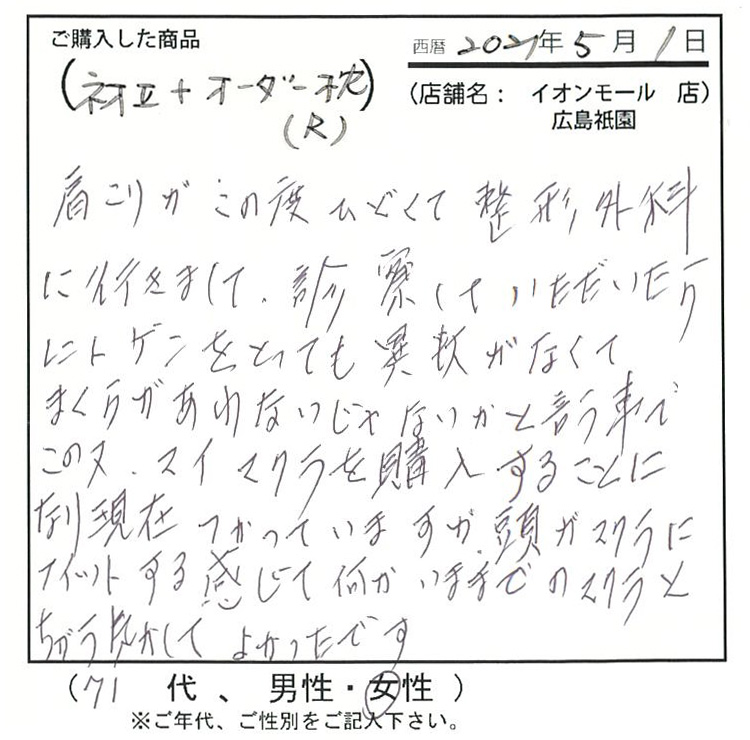 ご購入した商品
西暦 2021年5月1日
(ネオエ+オーダー枕)
(R)
(店舗名: イオンモール 店)
広島祇園
肩こりがこの度ひどくて整形外科
に行きまして、診察していただいたり
にトゲンをとっても異状がなくて
まくらがあわないじゃないかと言う事で
この スイマクラを購入することに
なり現在つかっていますが、頭がマクラに
フィットする感じて何かいままでのマクラと
ちがう気がして よかったです
(71 代、男性・女性)
※ご年代、ご性別をご記入下さい。